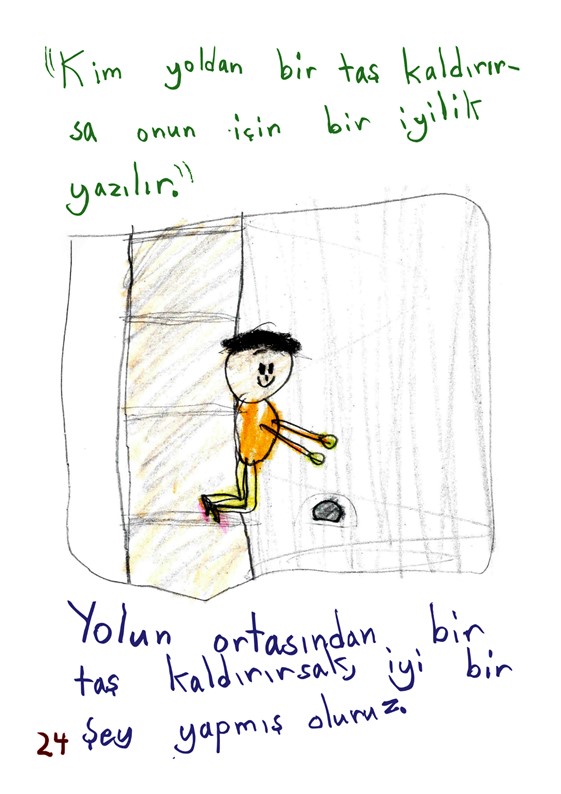 "Kim yoldan bir taş kaldırır-
sa onun için bir iyilik
yazılır."
Yolun ortasından bir
taş kaldırırsak, iyi bir
24 şey yapmış oluruz.